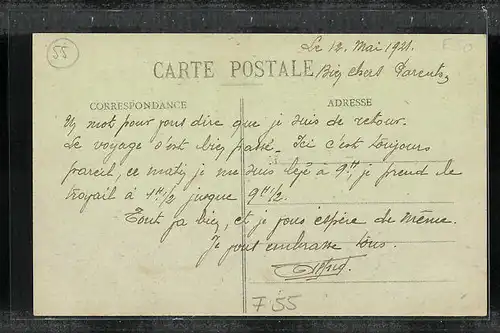 55
Le 12 Mai 1921.
F50
CARTE POSTALE
Bien chers Parents,
CORRESPONDANCE
ADRESSE
Un mot pour vous dire que je suis de retour.
Le voyage s'est bien passé. Ici c'est toujours
pareil, ce matin je me suis levé à 9H, je prend le
travail à 1H1/2 jusque 9H1/2.
Tout va bien, et je vous espère de même.
Je vous embrasse tous.
F55